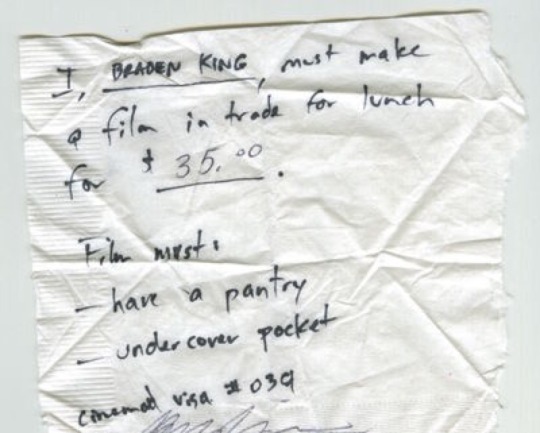 I, BRADEN KING, must make
a film in trade for lunch
for $ 35.00.
Film must:
— have a pantry
— undercover pocket
cinemad visa # 039